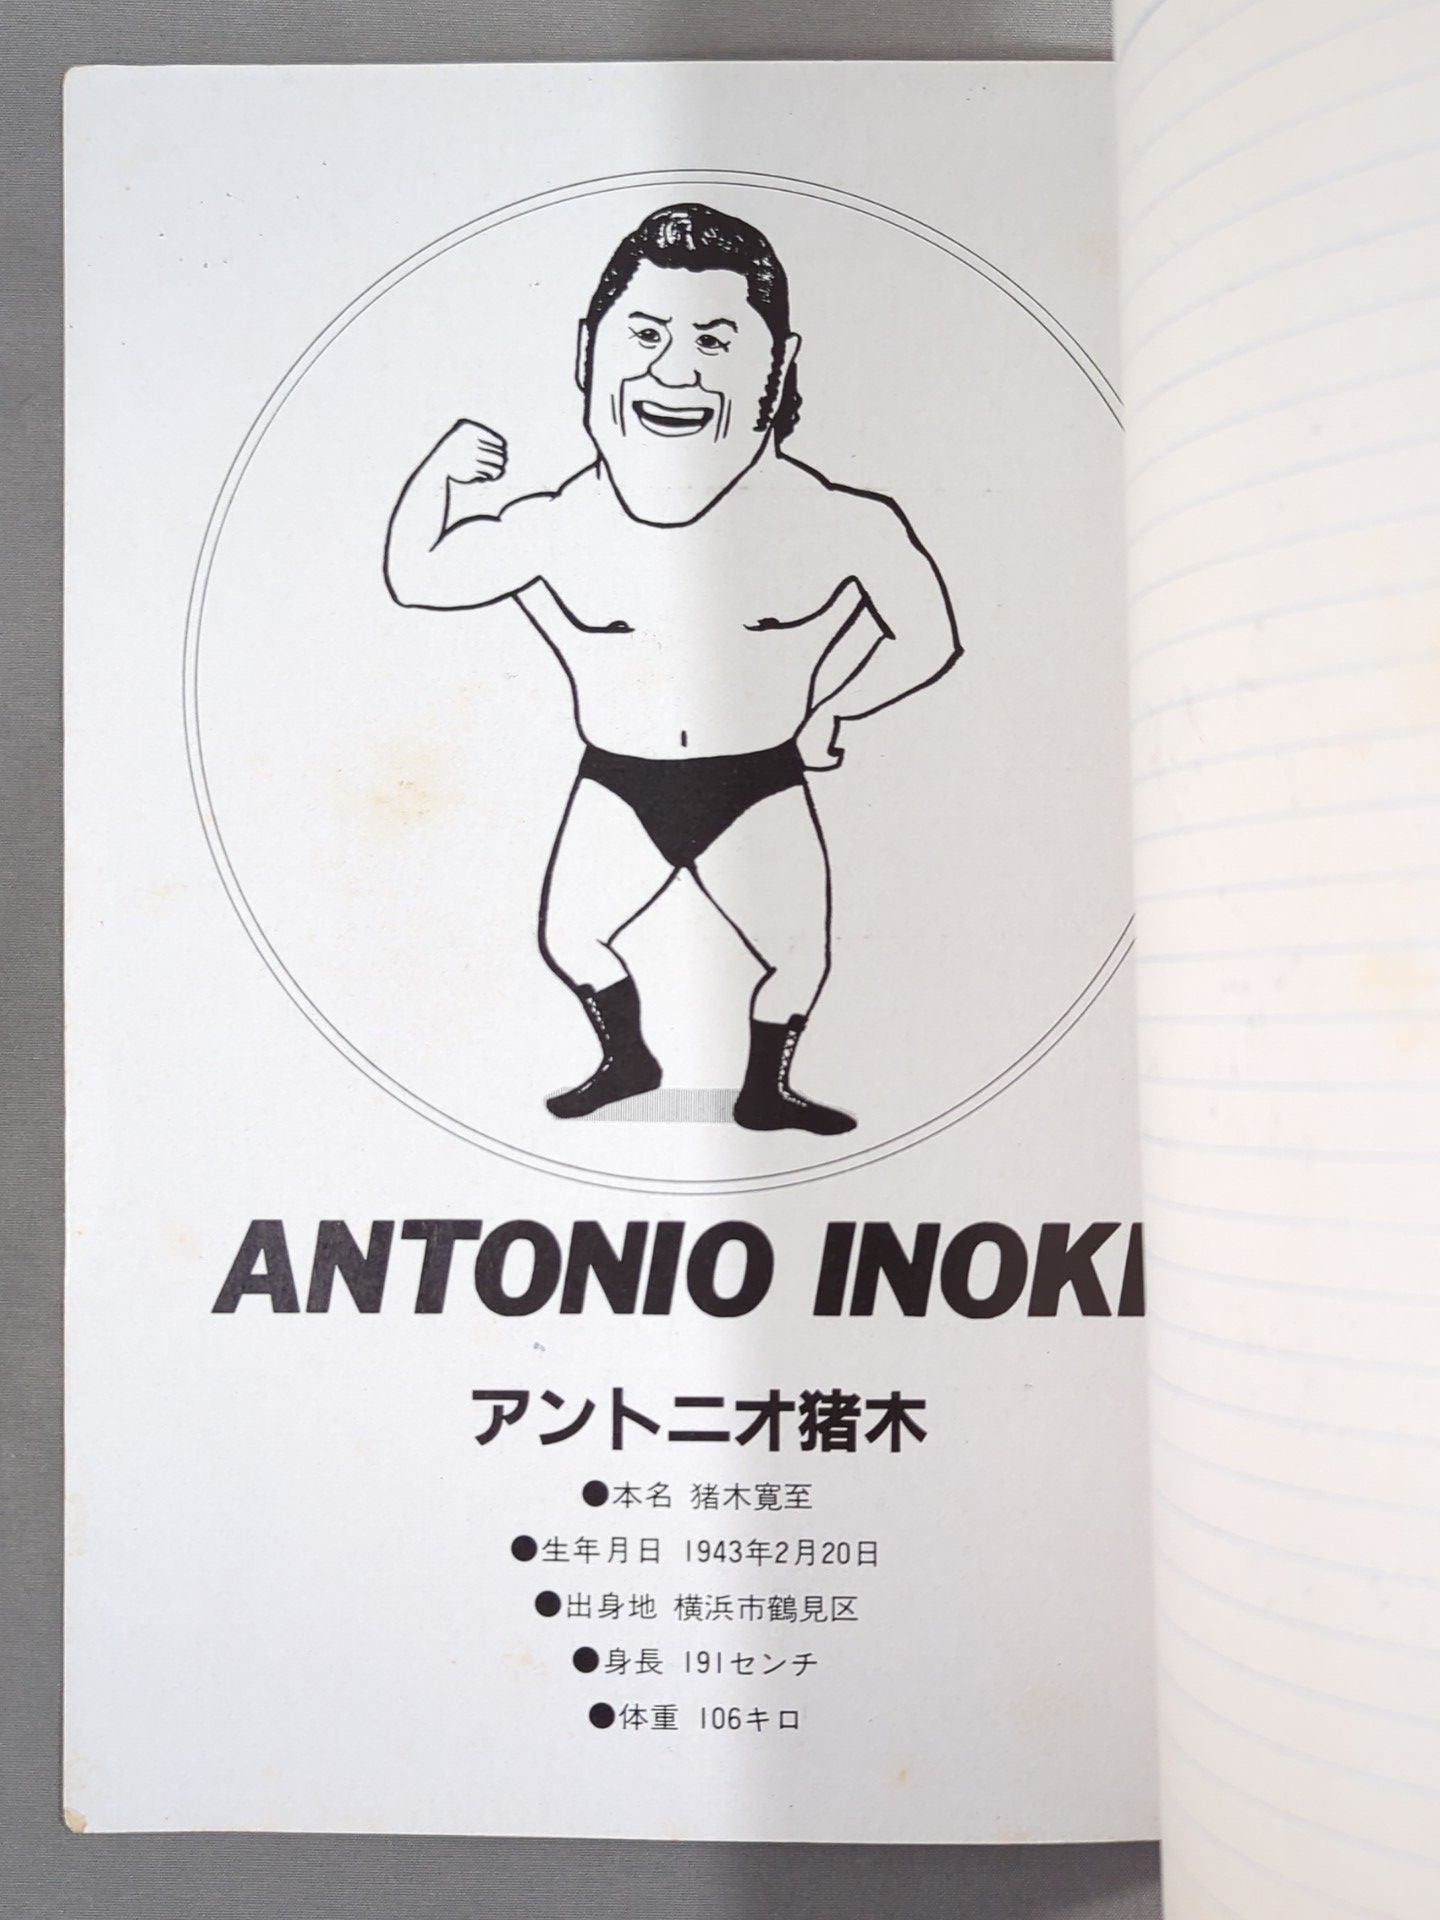 ANTONIO INOKI
アントニオ猪木
●本名 猪木寛至
●生年月日 1943年2月20日
●出身地 横浜市鶴見区
●身長 191センチ
●体重 106キロ